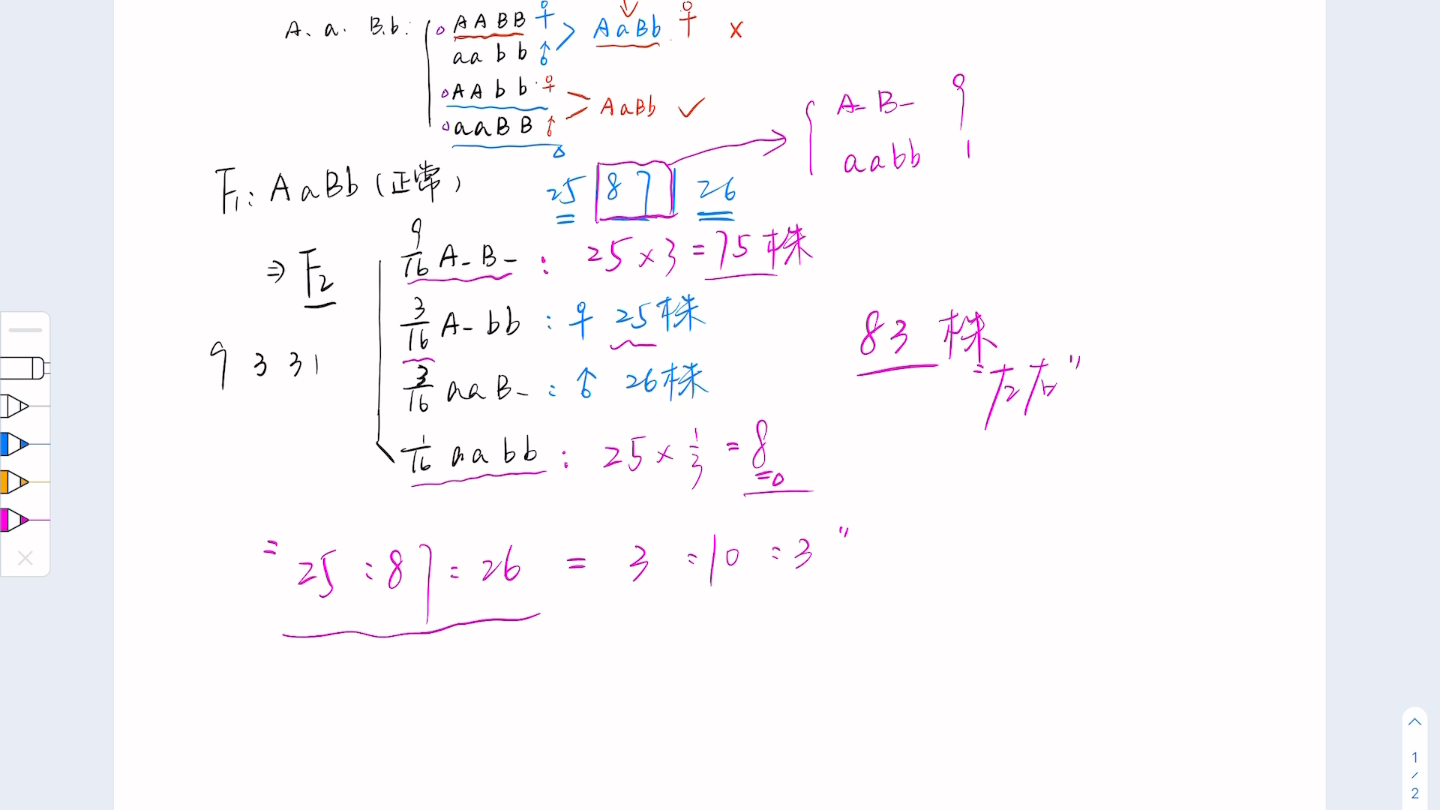 A. a. B.b:
AABB ♀ > AaBb ♀ ×
aabb ♂
AAbb ♀ > AaBb ✓
aaBB ♂
A_B_ 9
aabb 1
F₁: AaBb (正常)
25 87 26
⇒ F₂
9/16 A_B_ : 25×3=75株
3/16 A_bb : ♀ 25株
3/16 aaB_ : ♂ 26株
1/16 aabb : 25×1/3=8
9 3 3 1
83 株 "左右"
"25:87:26 = 3:10:3"
1
/
2